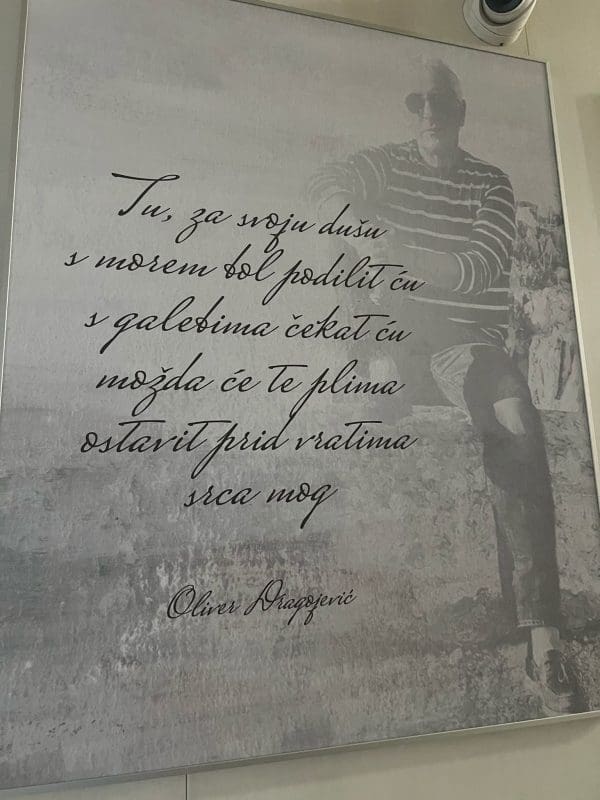 Tu, za svoju dušu
s morem bol podilit ću
s galebima čekat ću
možda će te plima
ostavit prid vratima
srca mog
Oliver Dragojević